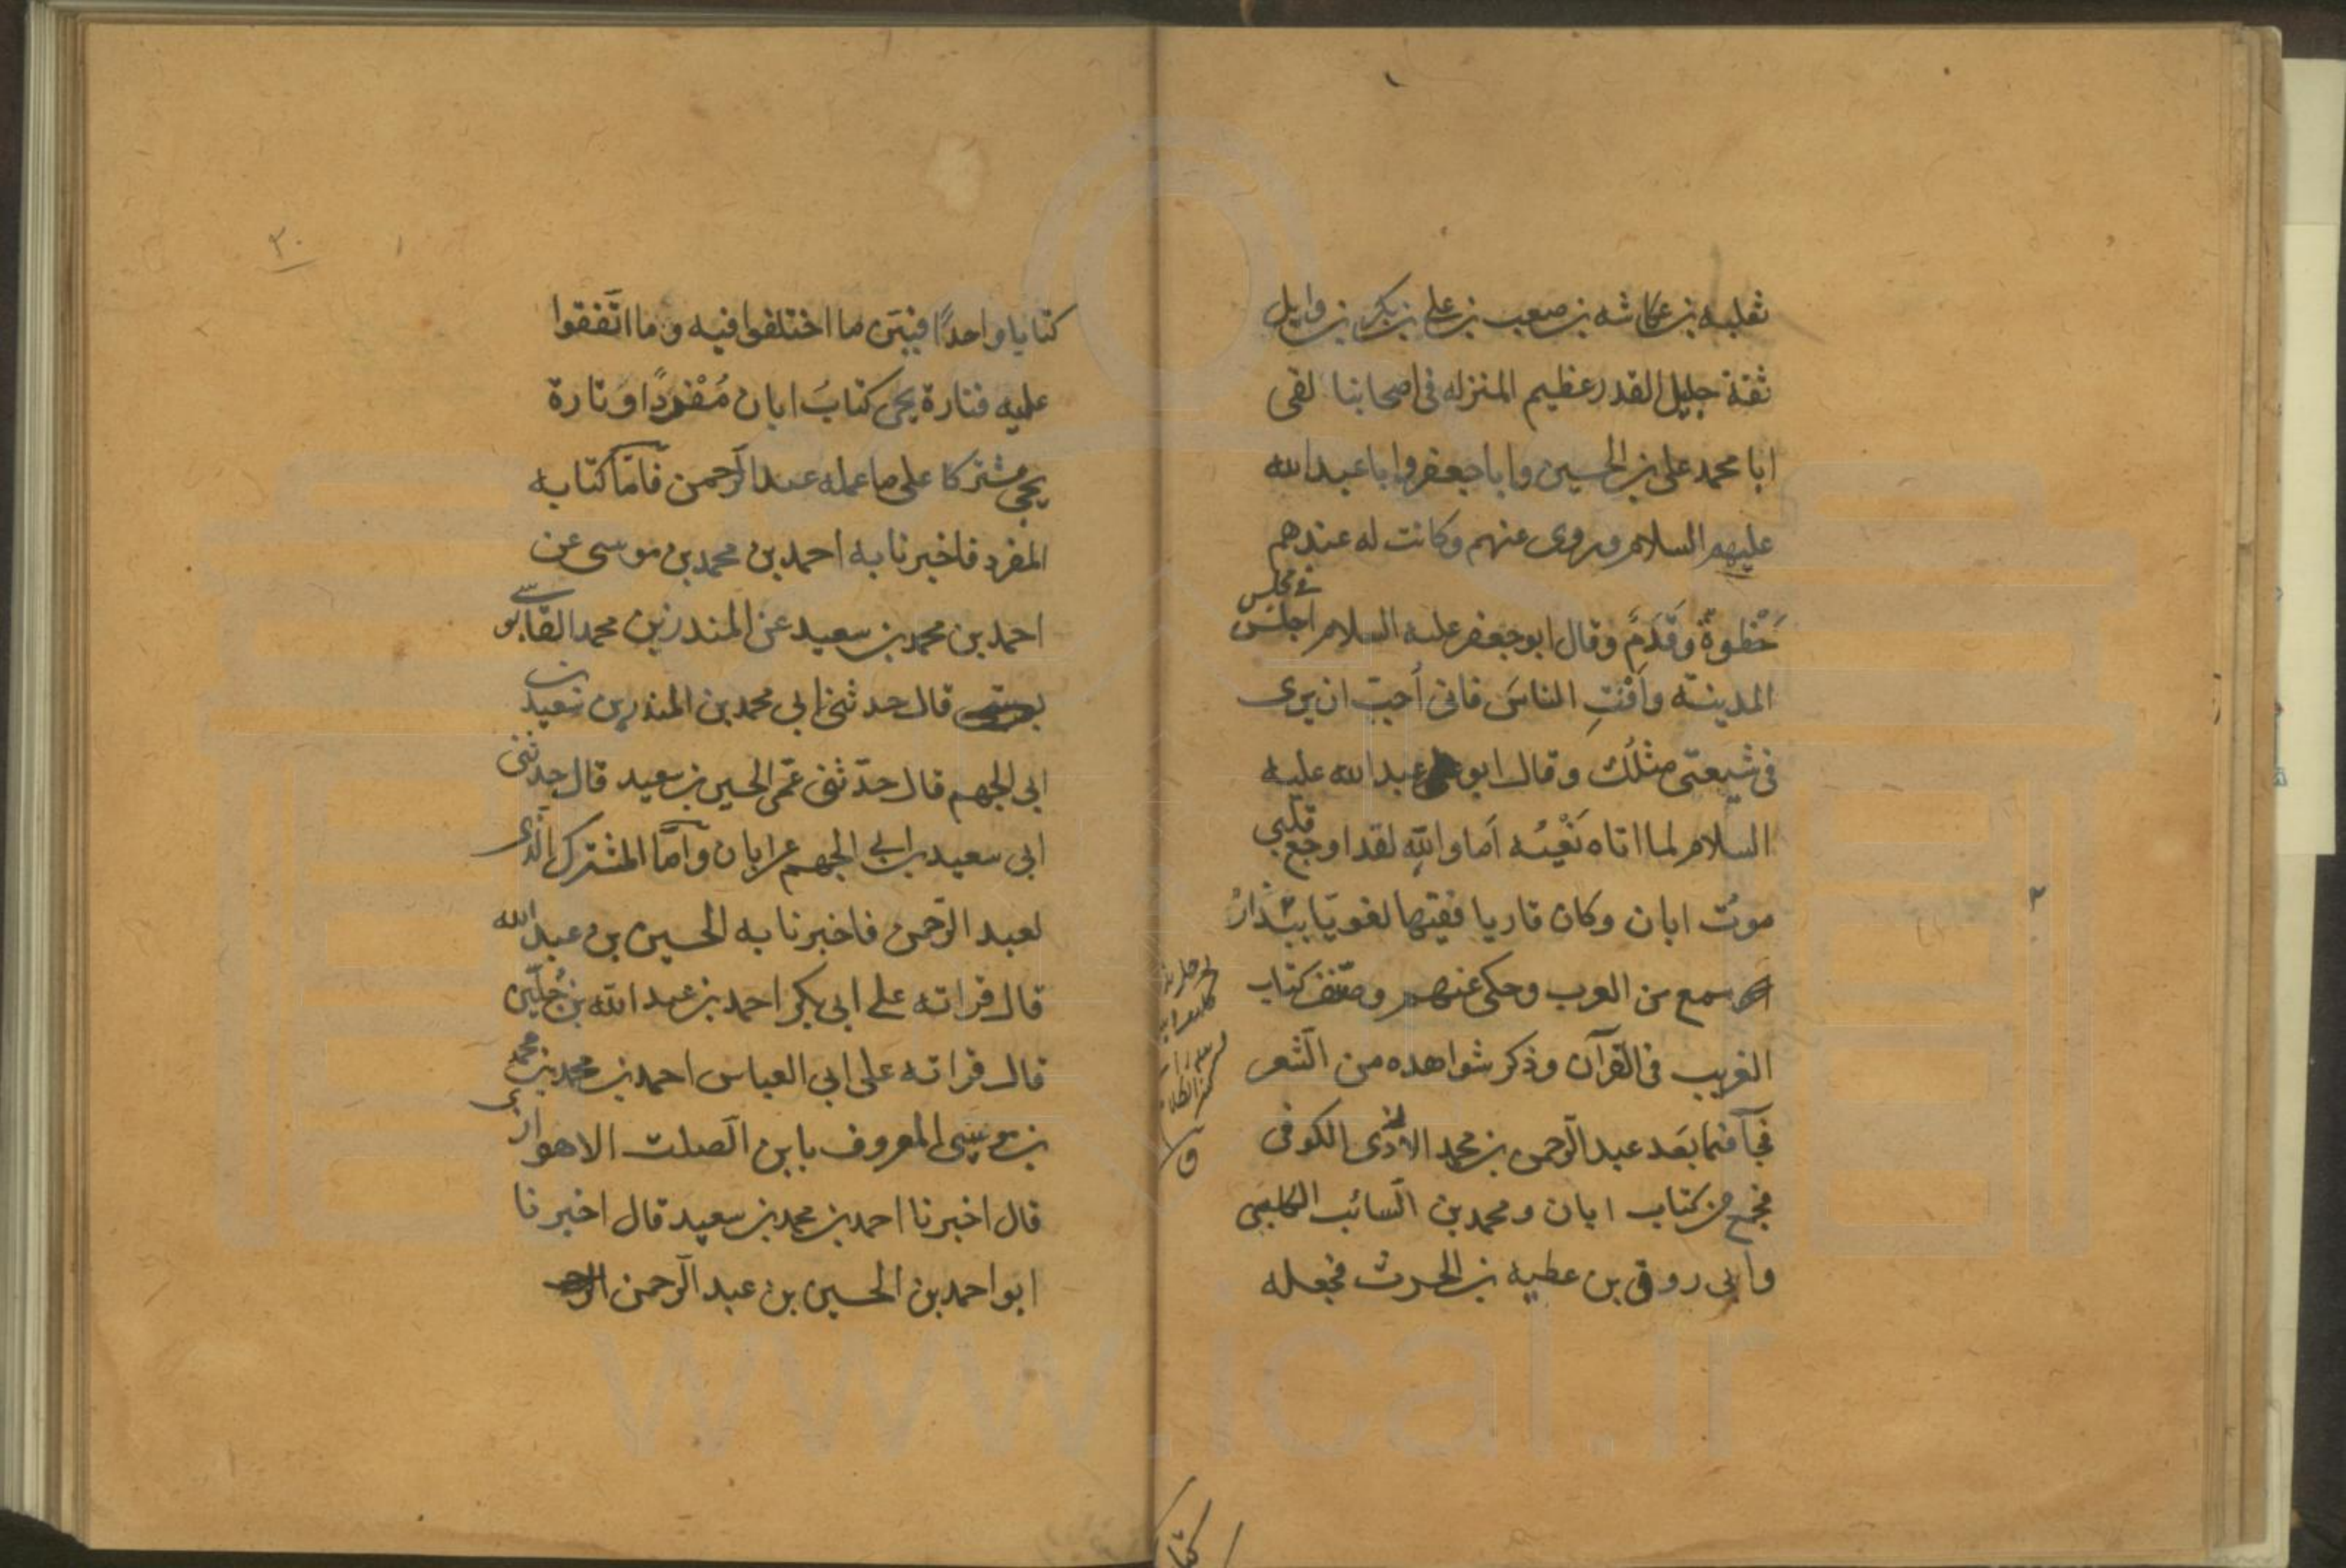 ثعلبه بن عكاشه بن صعب بن علي بن بكر بن وايل
ثقة جليل القدر عظيم المنزله في اصحابنا لقى
ابا محمد على بن الحسين وابا جعفر وابا عبد الله
عليهم السلام وروى عنهم وكانت له عندهم
حُظوةٌ وقَدَمٌ وقال ابو جعفر عليه السلام اجلس في مجلس
المدينة وافْتِ الناسَ فانى اُحبّ ان يرى
في شيعتى مثلُك وقال ابو عبد الله عليه
السلام لما اتاه نَعْيُه اَما واللهِ لقد اوجع قلبي
موتُ ابان وكان قاريا فقيها لغويّا
سمع من العرب وحكى عنهم وصنّف كتاب
الغريب في القرآن وذكر شواهده من الشعر
فجآ فيما بعد عبد الرّحمن بن محمد الازدى الكوفى
فجمع من كتاب ابان ومحمد بن السّائب الكلبي
وابى روق بن عطيه بن الحرث فجعله
كتابا واحدًا فبيّن ما اختلفوا فيه وما اتّفقوا
عليه فتارة يجى كتابَ ابان مُفْردًا وتارة
يجى مشتركا على ما عمله عبد الرّحمن فامّا كتابه
المفرد فاخبرنا به احمد بن محمد بن موسى عن
احمد بن محمد بن سعيد عن المنذر بن محمد القابوسي
قال حدثنى ابي محمد بن المنذر بن سعيد بن
ابي الجهم قال حدّثنى عمّى الحسين بن سعيد قال حدثنى
ابى سعيد بن ابي الجهم عن ابان وامّا المشترك الّذى
لعبد الرّحمن فاخبرنا به الحسين بن عبد الله
قال قراته على ابي بكر احمد بن عبد الله بن جُلّين
قال قراته على ابي العباس احمد بن محمد بن محمد
بن موسى المعروف بابن الصّلت الاهوازى
قال اخبرنا احمد بن محمد بن سعيد قال اخبرنا
ابو احمد بن الحسين بن عبد الرّحمن
www.ical.ir